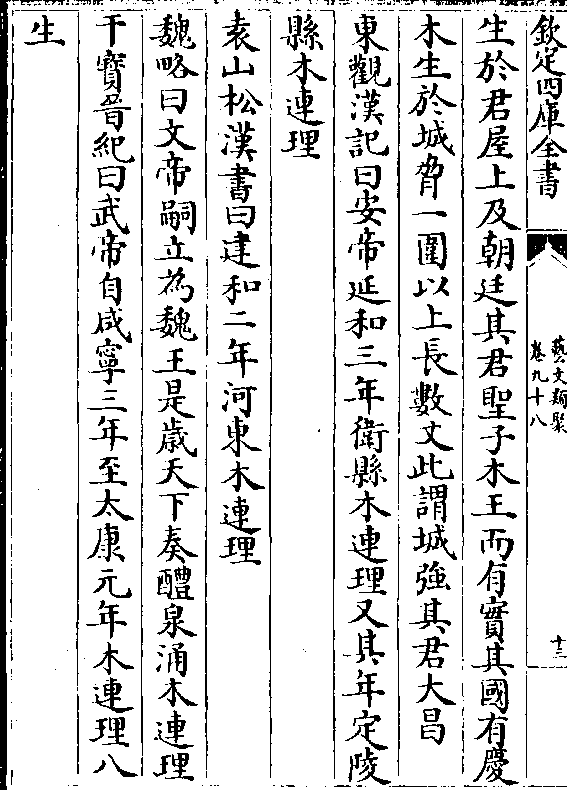 欽定四庫全書
藝文類聚
卷九十八
十三
生於君屋上及朝廷其君聖子木王而有實其國有慶
木生於城脅一圍以上長數丈此謂城強其君大昌
東觀漢記曰安帝延和三年衛縣木連理又其年定陵
縣木連理
袁山松漢書曰建和二年河東木連理
魏略曰文帝嗣立為魏王是歲天下奏醴泉涌木連理
干寶晉紀曰武帝自咸寧三年至太康元年木連理八
生